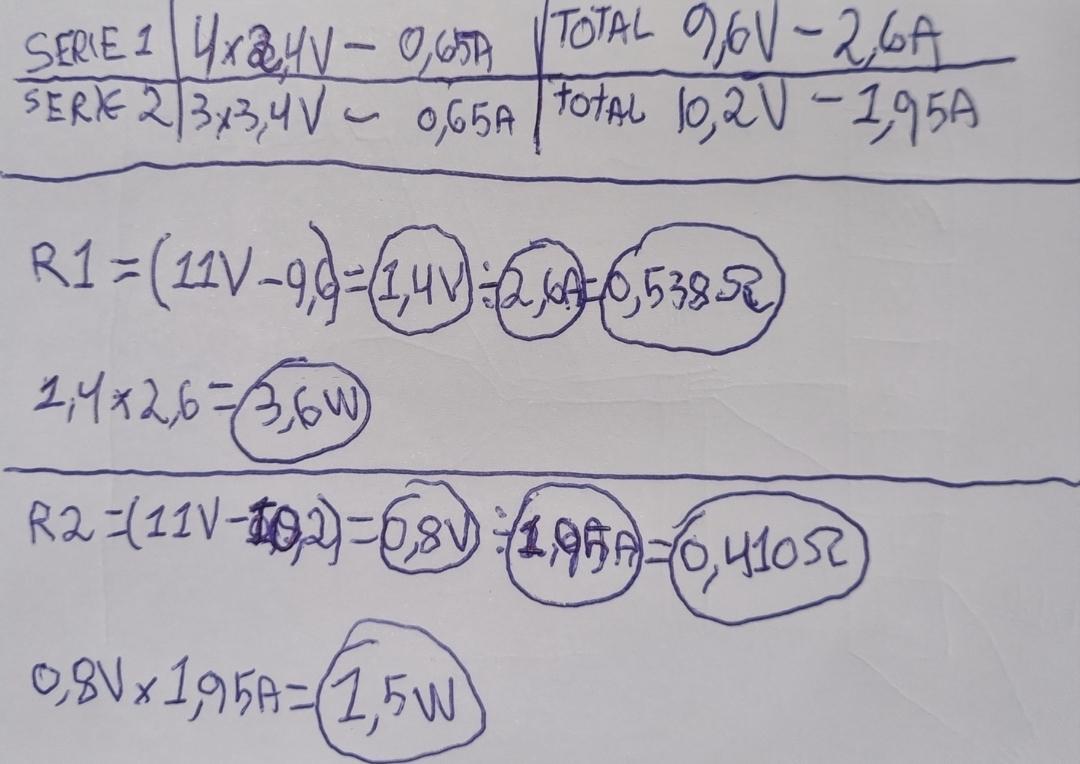 SERIE 1 | 4x2,4V - 0,65A | TOTAL 9,6V - 2,6A
SERIE 2 | 3x3,4V - 0,65A | TOTAL 10,2V - 1,95A
R1 = (11V - 9,6) = 1,4V ÷ 2,6A = 0,538Ω
1,4 x 2,6 = 3,6W
R2 = (11V - 10,2) = 0,8V ÷ 1,95A = 0,410Ω
0,8V x 1,95A = 1,5W